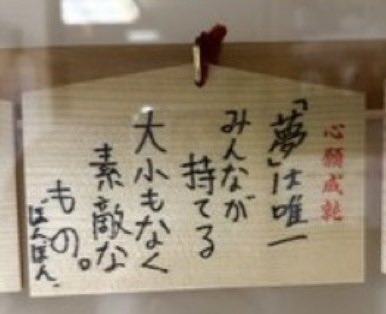 心願成就
「夢」は唯一
みんなが
持てる
大小もなく
素敵な
もの。
ぽんぽん.